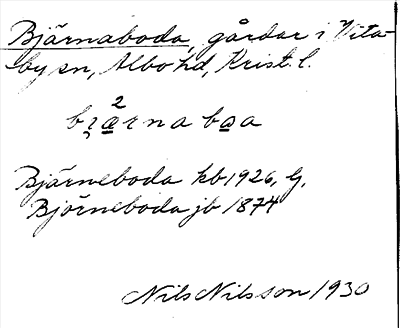 Bjärnaboda, gårdar i Vita-
by sn, Albo hd, Krist. l.
bi̯æ²rna bɷa
Bjärneboda kb 1926, G,
Björneboda jb 1874
Nils Nilsson 1930